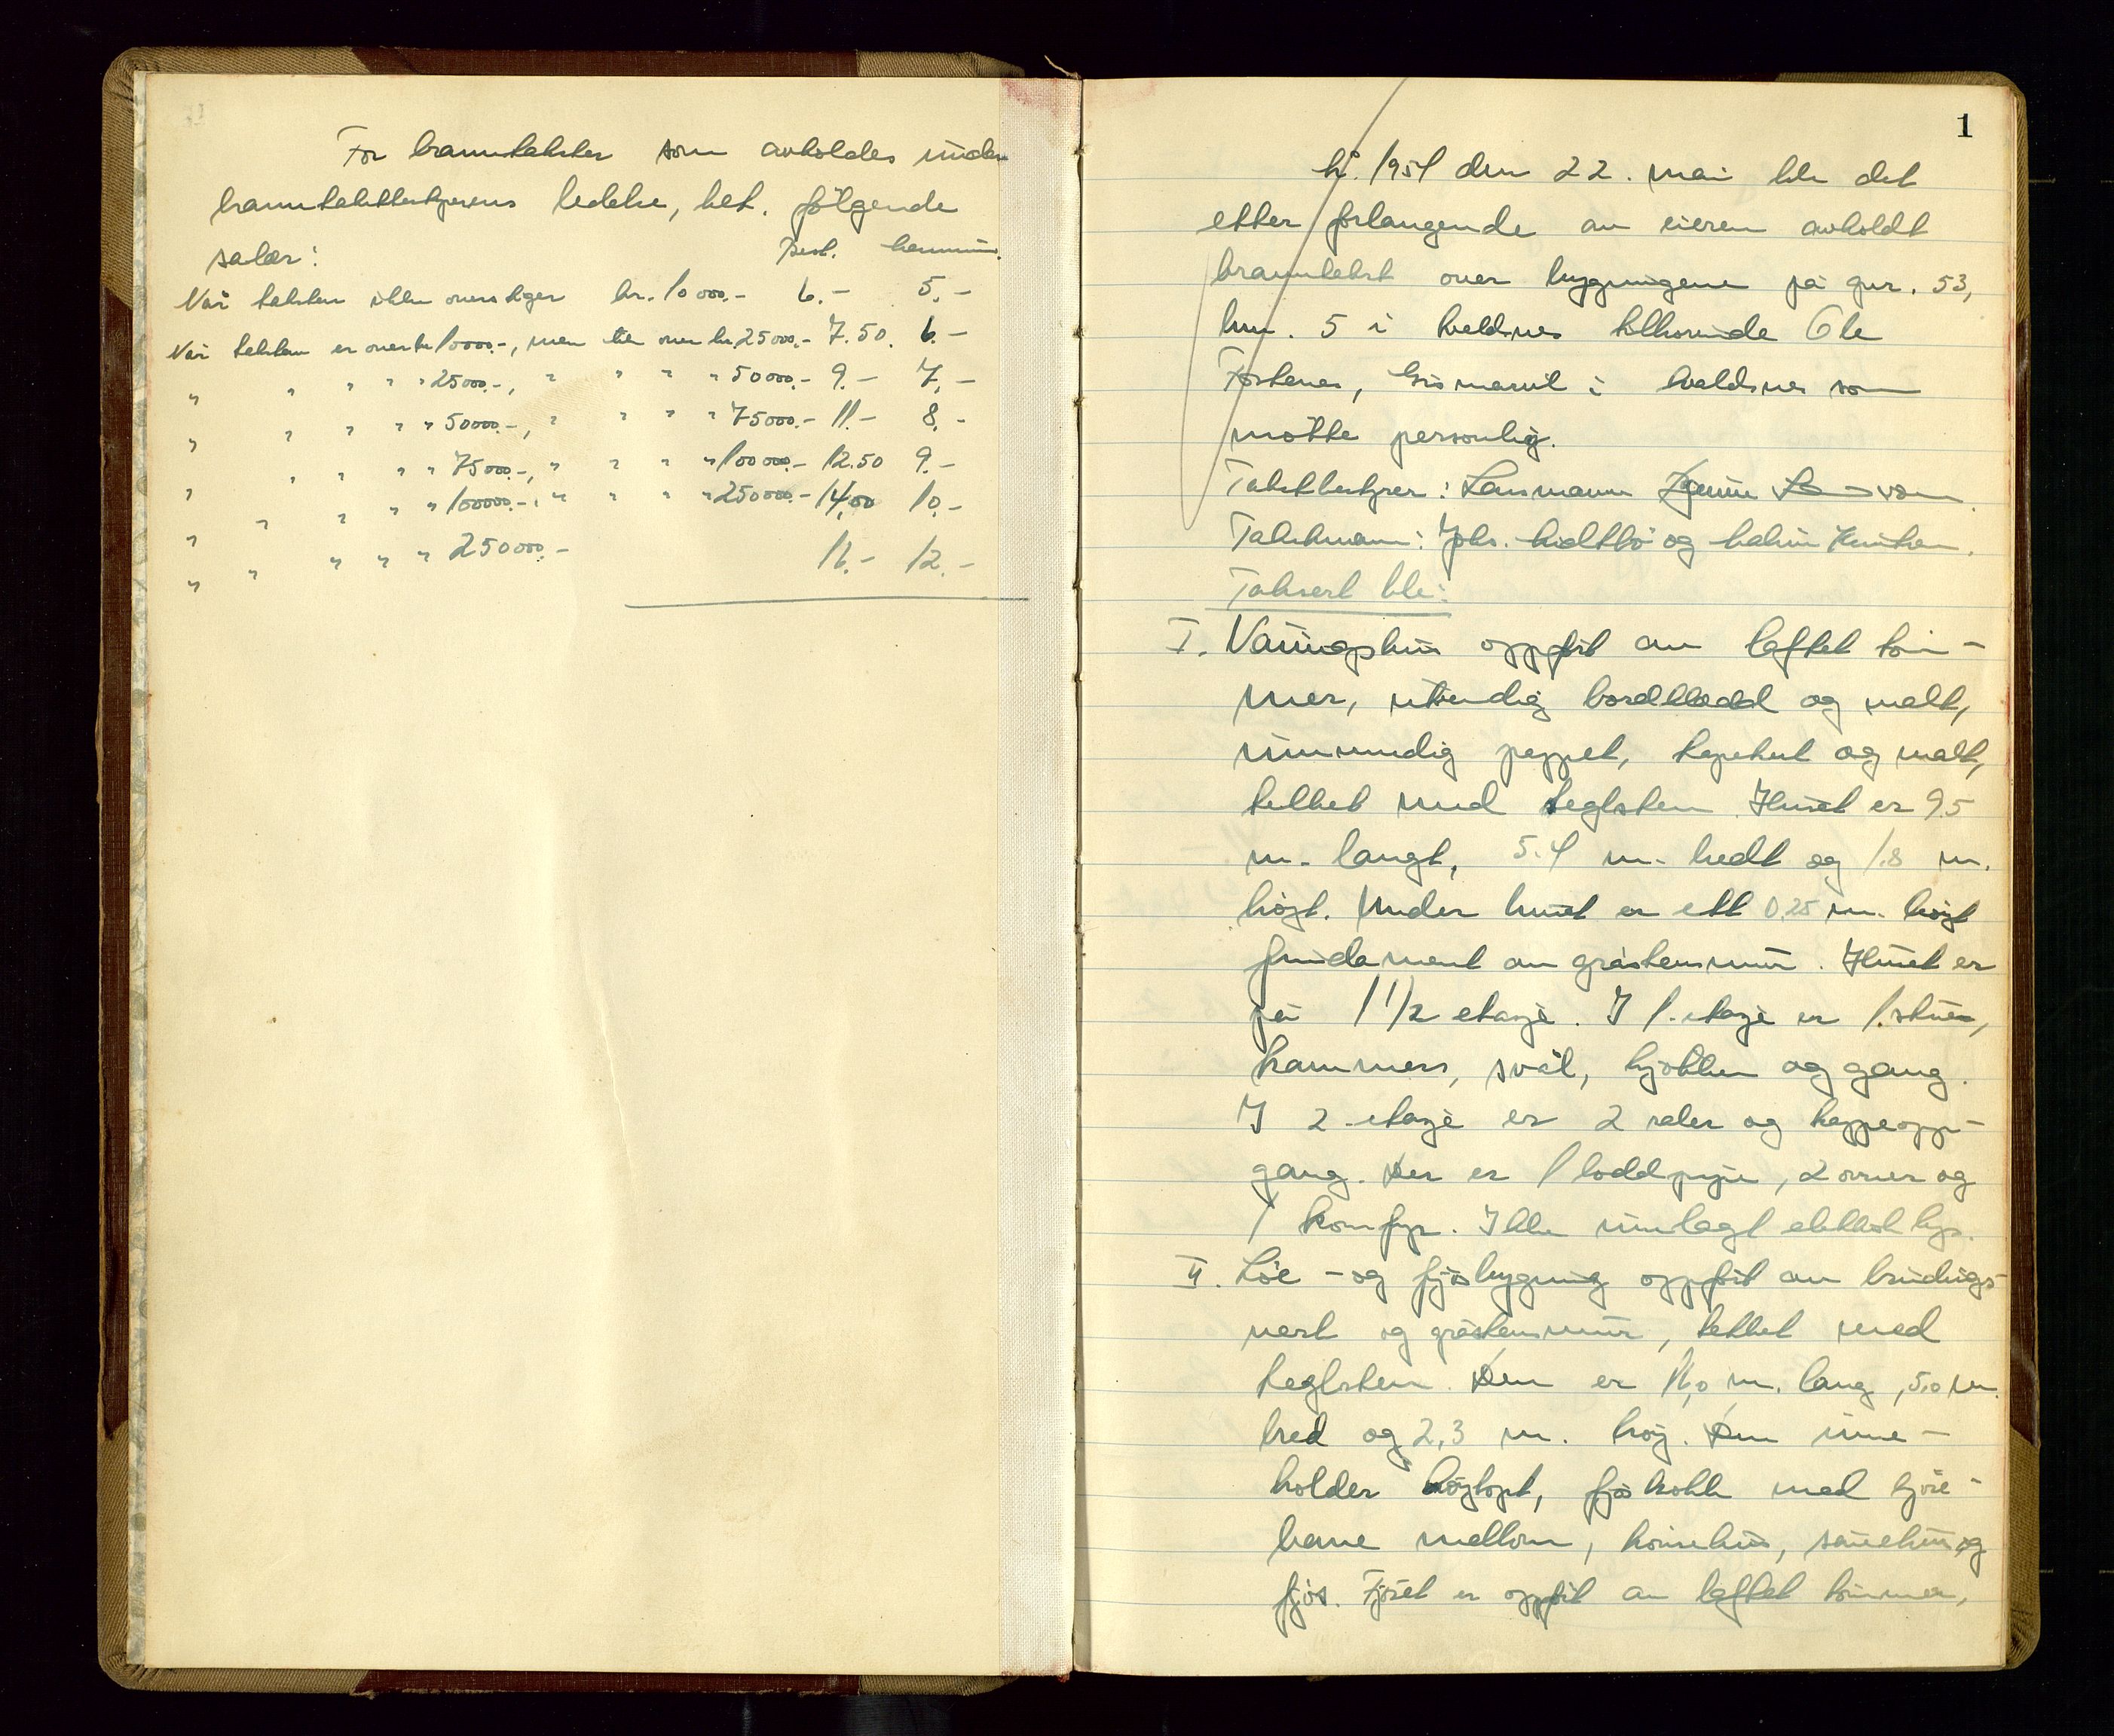 For branntakster som avholdes under
branntakstbestyrerens ledelse, bet. følgende
salær: Best. Kommun.
Når taksten ikke overstiger kr. 10 000.- 6.- 5.-
Når taksten er over kr 10000.-, men ikke over kr. 25000.- 7.50. 6.-
" " " " " 25000.-, " " " " 50000.- 9.- 7.-
" " " " " 50000.-, " " " " 75000.- 11.- 8.-
" " " " " 75000.-, " " " " 100000.- 12.50 9.-
" " " " " 100000.-, " " " " 250000.- 14,00 10.-
" " " " " 250000.- 16.- 12.-
1
År 1951 den 22. mai ble det
etter forlangende av eieren avholdt
branntakst over bygningene på gnr. 53,
bnr. 5 i tilhørende Ole
i som
møtte personlig.
Takstbestyrer: Lensmann
Takstmenn: Johs. og
Taksert ble:
I. Våningshus oppført av laftet tøm-
mer, utvendig bordkledd og malt,
innvendig pappet, tapetsert og malt,
tekket med teglsten. Huset er 9.5
m. langt, 5.4 m. bredt og 1.8 m.
høyt. Under huset er ett 0,25 m. høyt
fundament av gråstensmur. Huset er
på 1 1/2 etasje. I 1. etasje er 1. stue,
kammers, svål, kjøkken og gang.
I 2 etasje er 2 saler og trappeopp-
gang. Der er 1 loddpipe, 2 ovner og
1 komfyr. Ikke innlagt elektrisk lys.
II. Løe - og fjøsbygning oppført av bindings-
verk og gråstensmur, tekket med
teglsten. Den er 16,0 m. lang, 5,0 m.
bred og 2,3 m. høy. Den inne-
holder fjøs med kjøre-
bane mellom, hønsehus, sauehus og
fjøs. Fjøset er oppført av laftet tømmer,